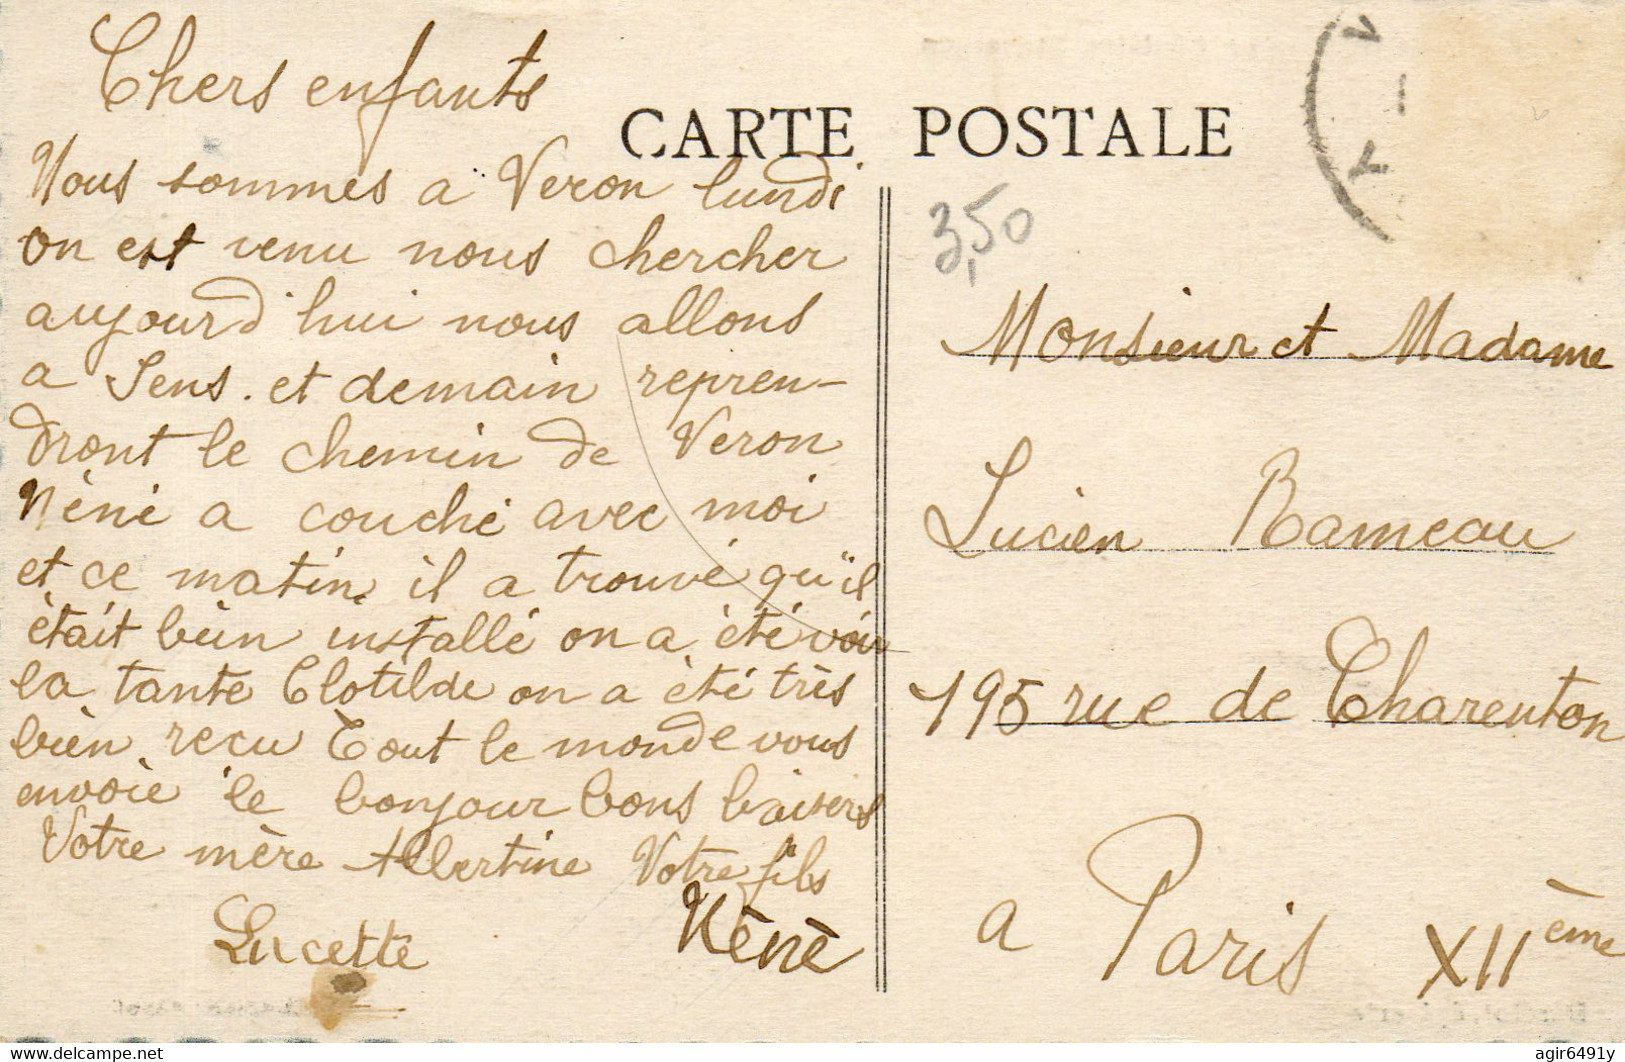 Chers enfants
CARTE POSTALE
Nous sommes a Veron lundi
on est venu nous chercher
aujourd'hui nous allons
a Sens. et demain repren-
dront le chemin de Veron
Nèné a couché avec moi
et ce matin il a trouvé qu'il
était bien installé on a été voir
la tante Clotilde on a été très
bien recu Tout le monde vous
envoie le bonjour bons baisers
Votre mère Albertine Votre fils
Lucette
Nènè
3,50
Monsieur et Madame
Lucien Rameau
195 rue de Charenton
a Paris XIIème
https://www.delcampe.net
agir6491y